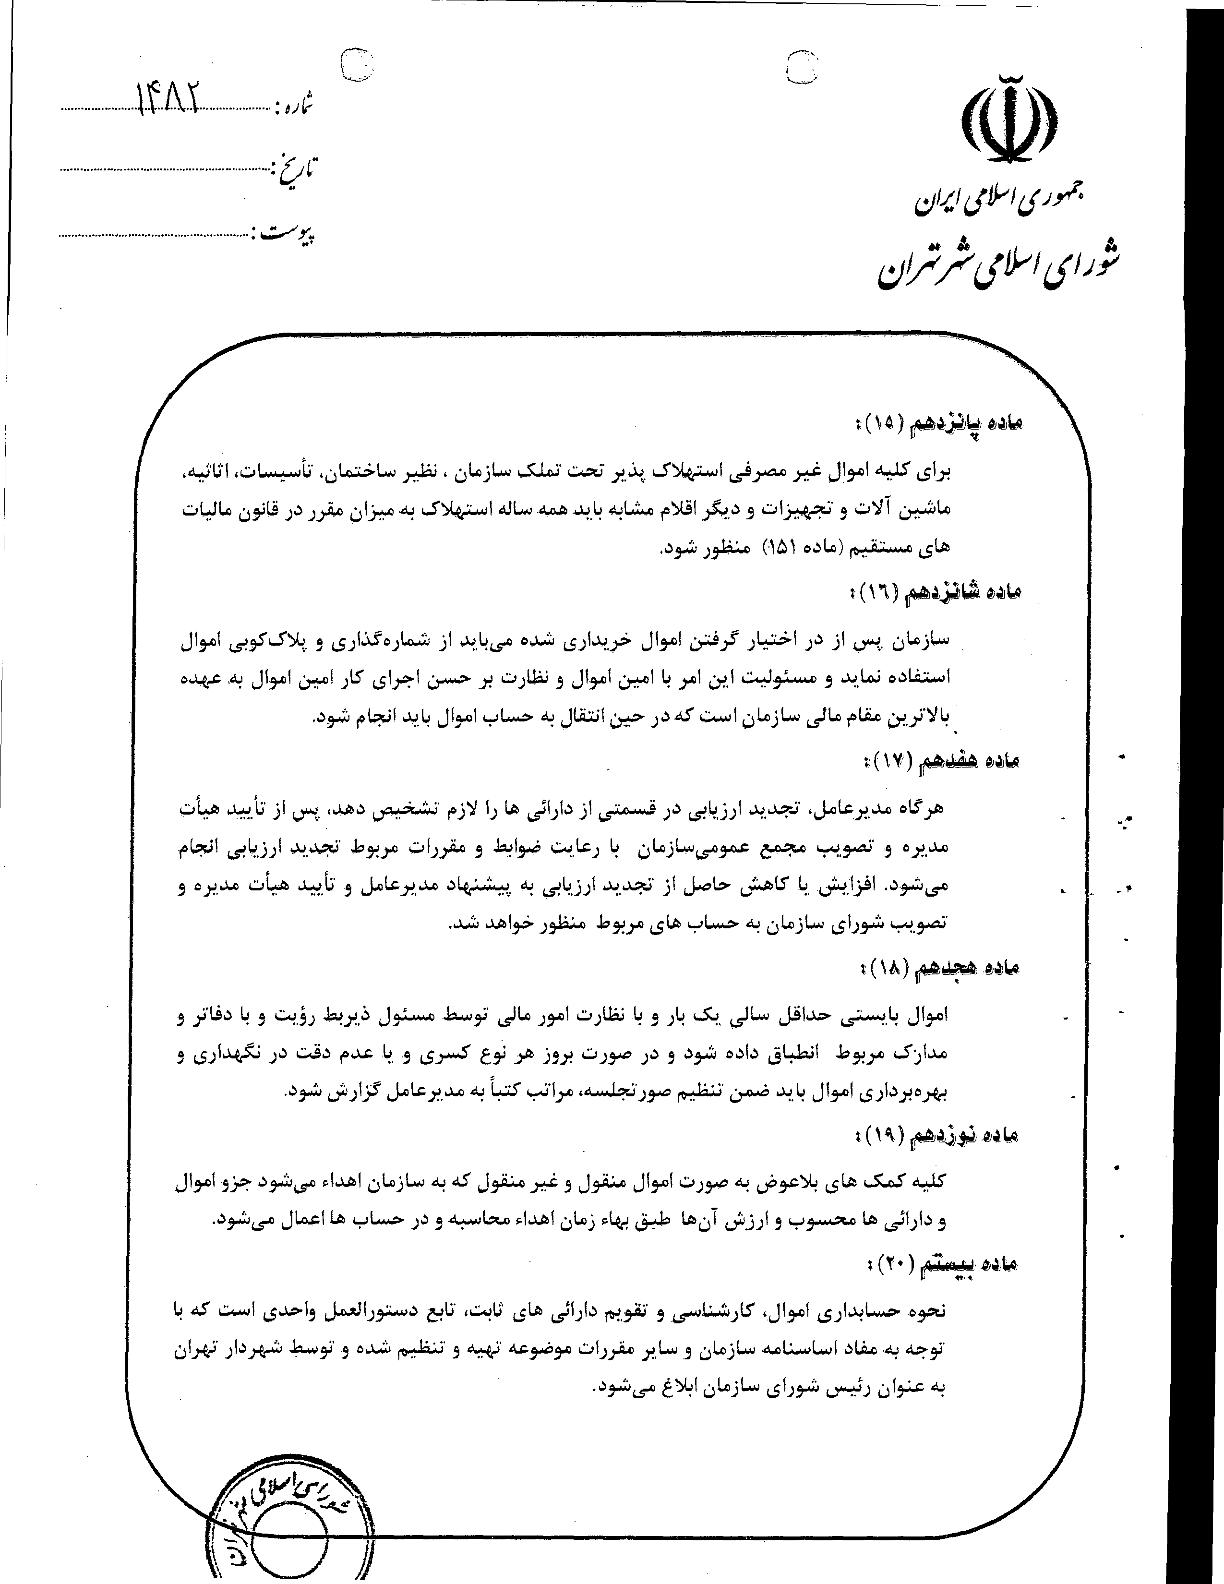 شماره: ۱۴۸۲
تاریخ:
پیوست:
جمهوری اسلامی ایران
شورای اسلامی شهر تهران
ماده پانزدهم (۱۵):
برای کلیه اموال غیر مصرفی استهلاک پذیر تحت تملک سازمان ، نظیر ساختمان، تأسیسات، اثاثیه،
ماشین آلات و تجهیزات و دیگر اقلام مشابه باید همه ساله استهلاک به میزان مقرر در قانون مالیات
های مستقیم (ماده ۱۵۱) منظور شود.
ماده شانزدهم (۱۶):
سازمان پس از در اختیار گرفتن اموال خریداری شده می‌باید از شماره‌گذاری و پلاک‌کوبی اموال
استفاده نماید و مسئولیت این امر با امین اموال و نظارت بر حسن اجرای کار امین اموال به عهده
بالاترین مقام مالی سازمان است که در حین انتقال به حساب اموال باید انجام شود.
ماده هفدهم (۱۷):
هرگاه مدیرعامل، تجدید ارزیابی در قسمتی از دارائی ها را لازم تشخیص دهد، پس از تأیید هیأت
مدیره و تصویب مجمع عمومی‌سازمان با رعایت ضوابط و مقررات مربوط تجدید ارزیابی انجام
می‌شود. افزایش یا کاهش حاصل از تجدید ارزیابی به پیشنهاد مدیرعامل و تأیید هیأت مدیره و
تصویب شورای سازمان به حساب های مربوط منظور خواهد شد.
ماده هجدهم (۱۸):
اموال بایستی حداقل سالی یک بار و با نظارت امور مالی توسط مسئول ذیربط رؤیت و با دفاتر و
مدارک مربوط انطباق داده شود و در صورت بروز هر نوع کسری و یا عدم دقت در نگهداری و
بهره‌برداری اموال باید ضمن تنظیم صورتجلسه، مراتب کتباً به مدیرعامل گزارش شود.
ماده نوزدهم (۱۹):
کلیه کمک های بلاعوض به صورت اموال منقول و غیر منقول که به سازمان اهداء می‌شود جزو اموال
و دارائی ها محسوب و ارزش آن‌ها طبق بهاء زمان اهداء محاسبه و در حساب ها اعمال می‌شود.
ماده بیستم (۲۰):
نحوه حسابداری اموال، کارشناسی و تقویم دارائی های ثابت، تابع دستورالعمل واحدی است که با
توجه به مفاد اساسنامه سازمان و سایر مقررات موضوعه تهیه و تنظیم شده و توسط شهردار تهران
به عنوان رئیس شورای سازمان ابلاغ می‌شود.
شورای اسلامی شهر تهران